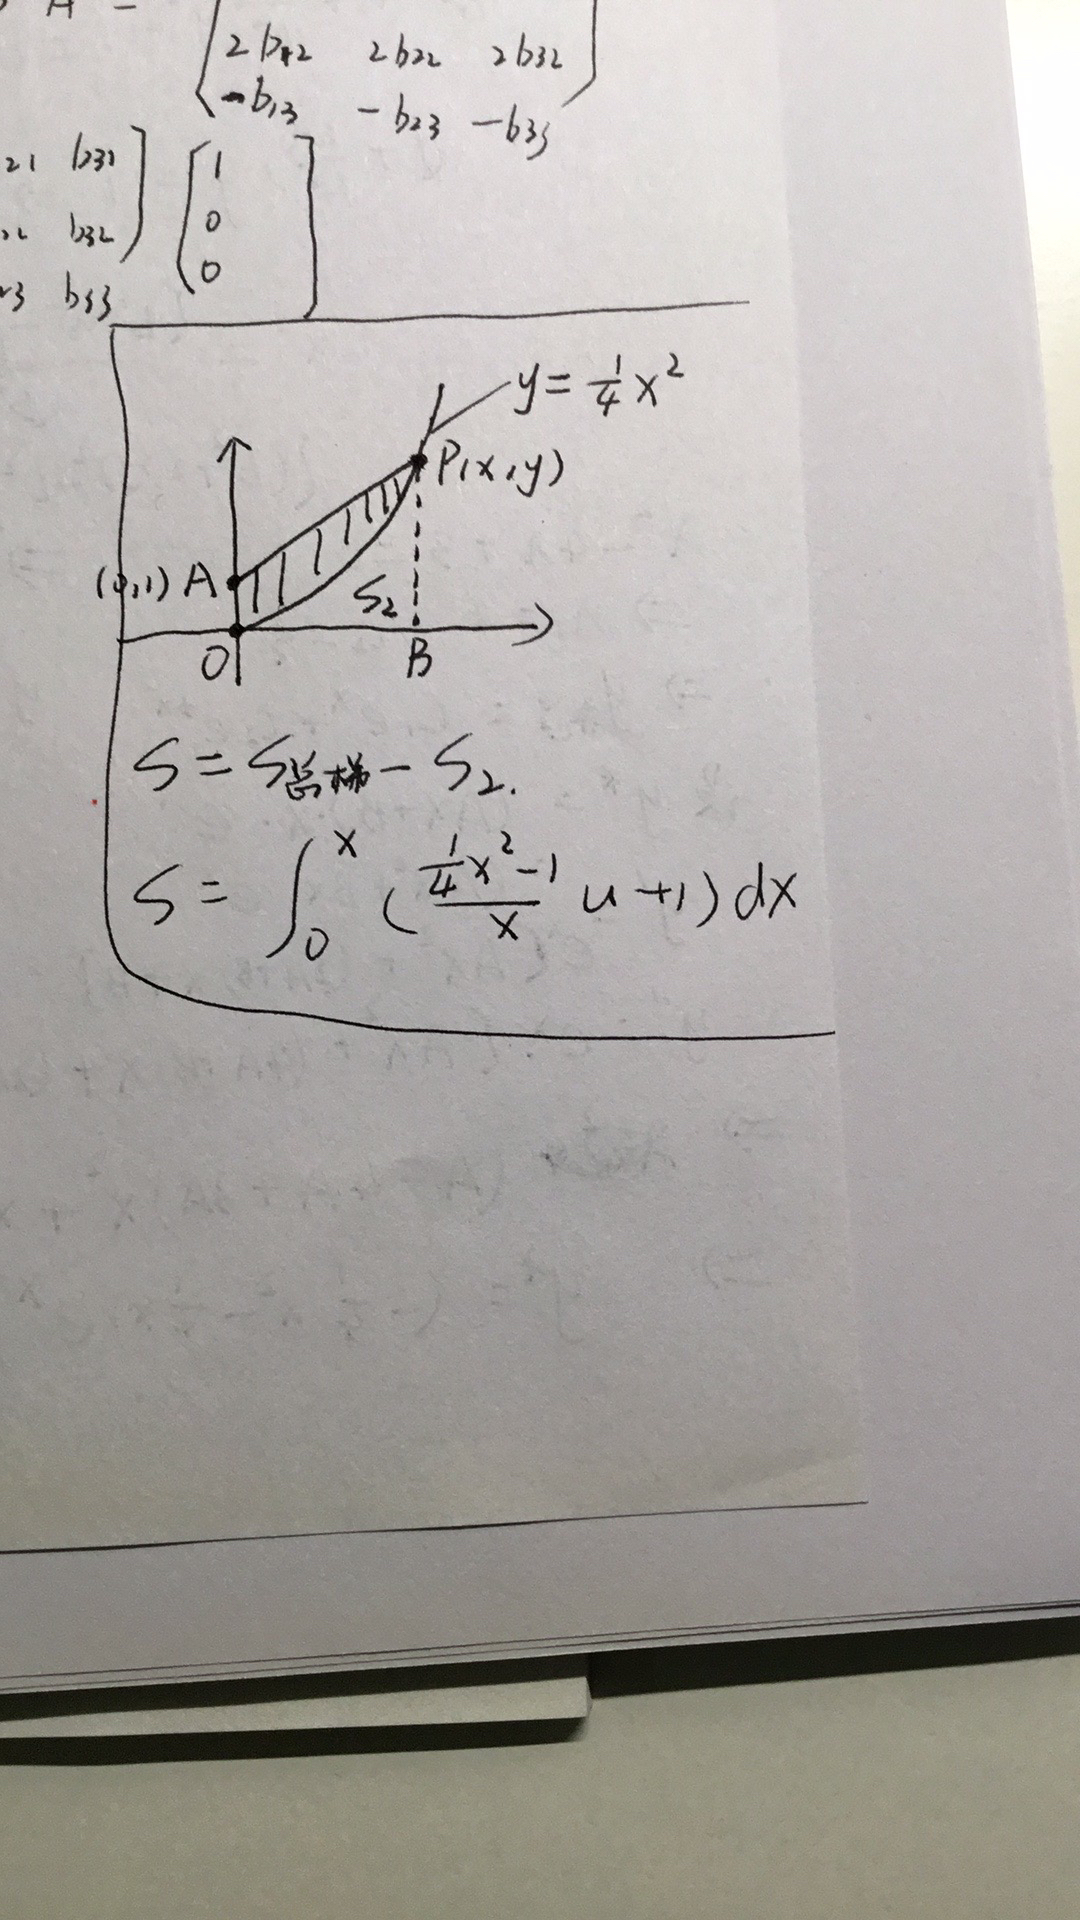 A =
2b12 2b22 2b32
-b13 -b23 -b33
21 b31 1
b32 0
b33 0
y = 1/4 x²
P(x, y)
(0,1) A
S2
O B
S = S总梯 - S2.
S = ∫₀ˣ ( (1/4 x² - 1)/x u + 1 ) dx